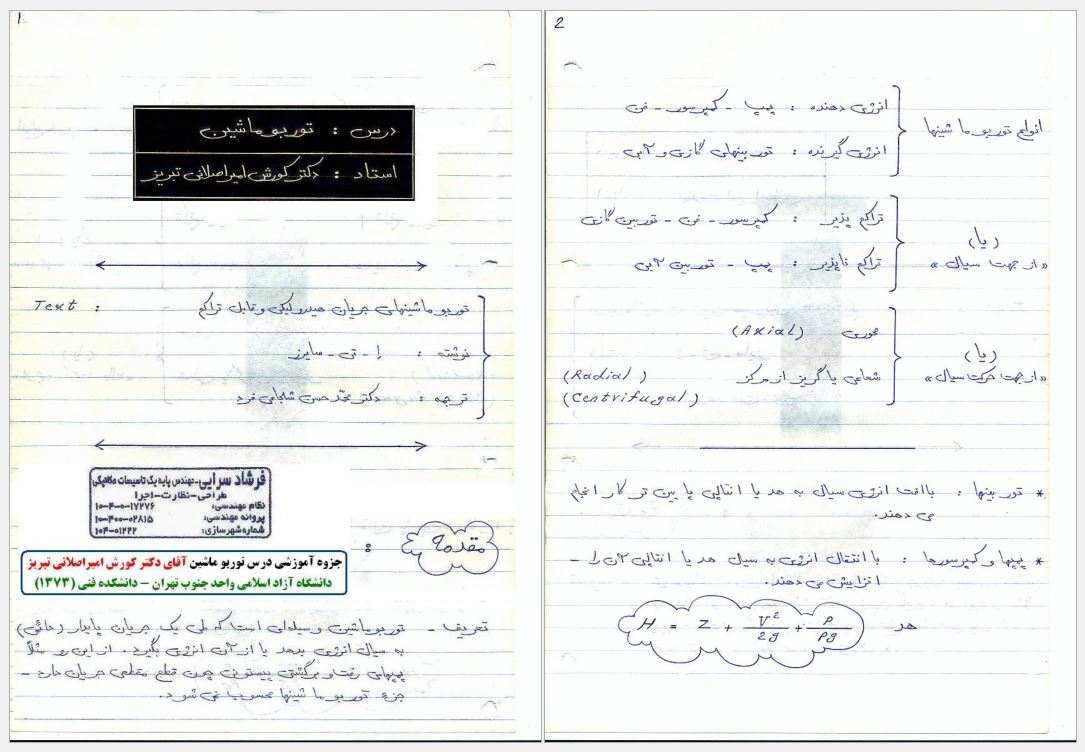 1
درس : توربوماشین
استاد : دکتر کورش امیراصلانی تبریز
Text : توربوماشینهای جریان هیدرولیکی و قابل تراکم
نوشته : اِ - تی - سایرز
ترجمه : دکتر محمّد حسن شجاعی فرد
فرشاد سرایی-مهندس پایه یک تاسیسات مکانیکی
طراحی-نظارت-اجرا
نظام مهندسی: ۱۰-۴-۰-۱۷۲۷۶
پروانه مهندسی: ۱۰-۴۰۰-۰۲۸۱۵
شماره شهرسازی: ۱۰۴-۰۱۲۲۲
مقدمه :
جزوه آموزشی درس توربو ماشین آقای دکتر کورش امیراصلانی تبریز
دانشگاه آزاد اسلامی واحد جنوب تهران – دانشکده فنی (۱۳۷۳)
تعریف - توربوماشین وسیله‌ای است که طی یک جریان پایدار (دائمی)
به سیال انرژی بدهد یا از آن انرژی بگیرد. از این رو مثلاً
پمپهای رفت و برگشتی پیستونی چون قطع مقطعی جریان دارد -
جزءِ توربو ماشینها محسوب نمی شود.
2
انواع توربو ماشینها
انرژی دهنده : پمپ - کمپرسور - فن
انرژی گیرنده : توربینهای گازی و آبی
(یا)
«از جهت سیال»
تراکم پذیر : کمپرسور - فن - توربین گازی
تراکم ناپذیر : پمپ - توربین آبی
(یا)
«از جهت حرکت سیال»
محوری (Axial)
شعاعی یا گریز از مرکز (Radial)
(Centrifugal)
* توربینها : با افت انرژی سیال به هد یا انتالپی پایین تر کار انجام
می دهند.
* پمپها و کمپرسورها : با انتقال انرژی به سیال هد یا انتالپی آن را -
افزایش می دهند.
هد H = Z + V²/2g + P/ρg